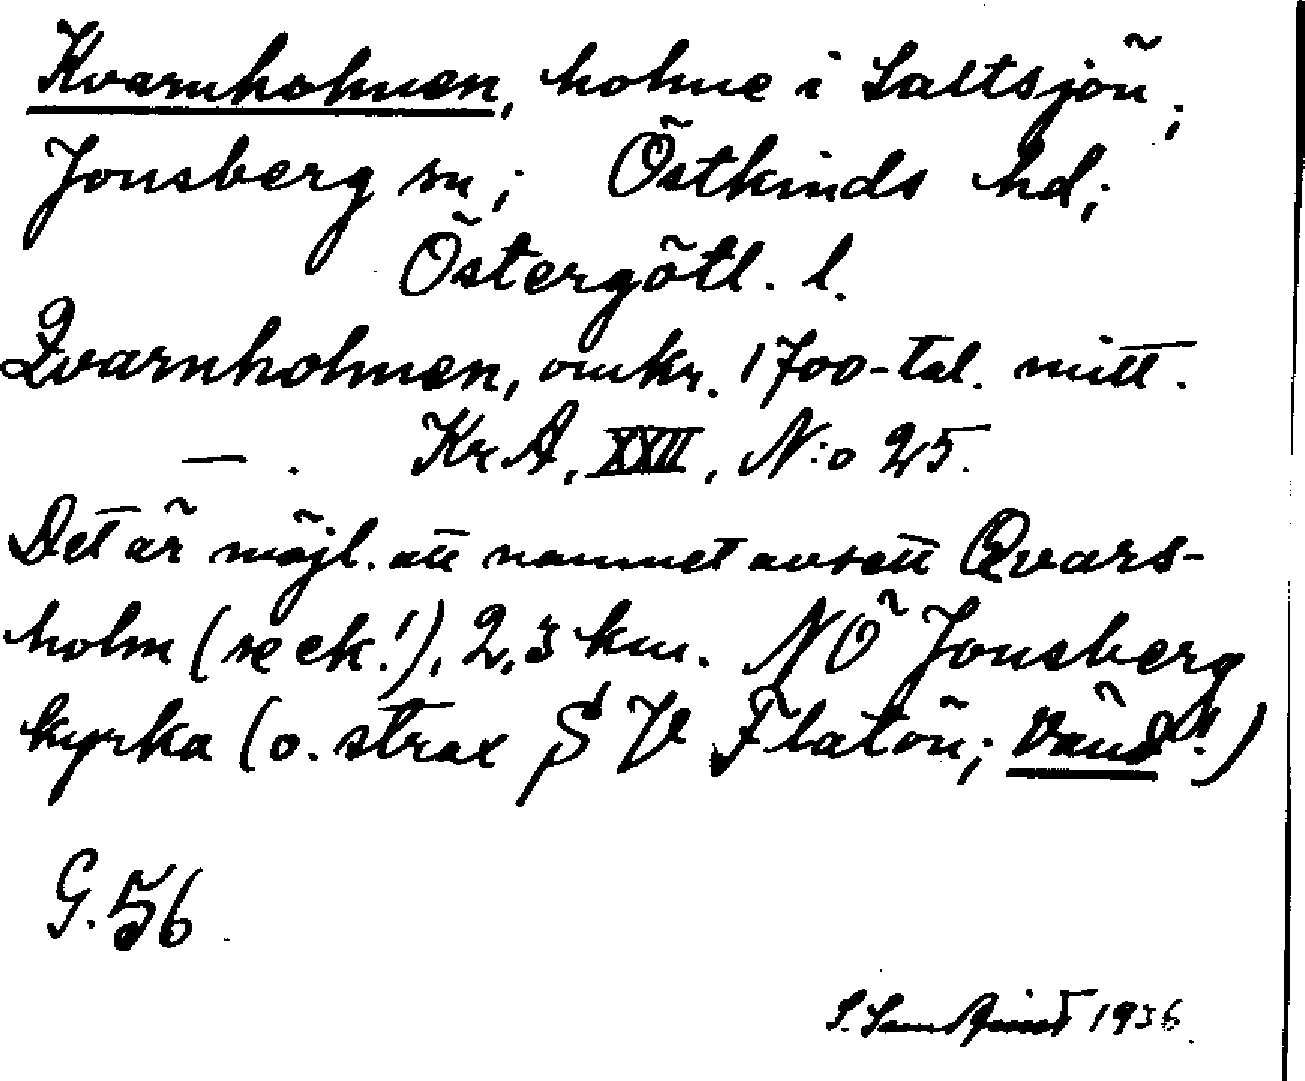 Kvarnholmen, holme i Saltsjön;
Jonsberg sn; Östkinds hd;
Östergötl. l.
Qvarnholmen, omkr. 1700-tal. mitt.
— . KrA, XXII, N:o 25.
Det är möjl. att namnet avsett Qvars-
holm (se ek.!), 2,3 km. NÖ Jonsberg
kyrka (o. strax S V Flatön; Vänd!)
G. 56
S. 1936